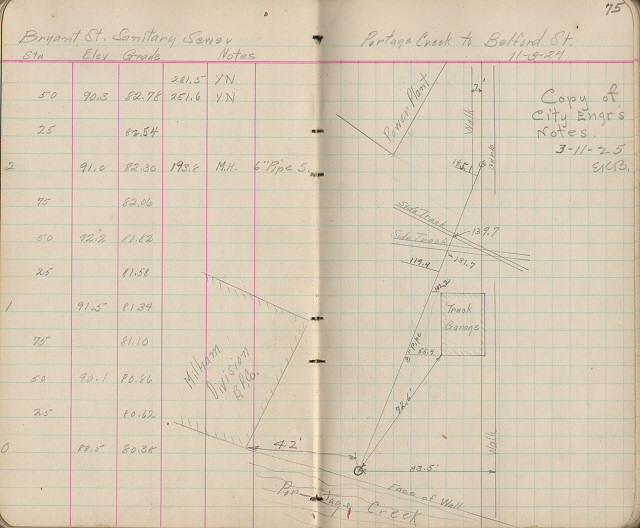 75
Bryant St. Sanitary Sewer
Portage Creek to Belford St.
11-8-24
Sta Elev Grade Notes
261.5 YN
50 90.3 82.78 251.6 YN
25 82.54
2 91.0 82.30 193.8 M.H. 6" Pipe S.
75 82.06
50 92.2 81.82
25 81.58
1 91.5 81.34
75 81.10
50 90.1 80.86
25 80.62
0 88.5 80.38
Milham
Division
B.P.Co.
42'
Power Plant
Walk
Copy of
City Engr's
Notes.
3-11-25
Side Track
139.7
Side Track
131.7
119.4
Truck
Garage
8" Pipe
Walk
Face of Wall
Portage Creek